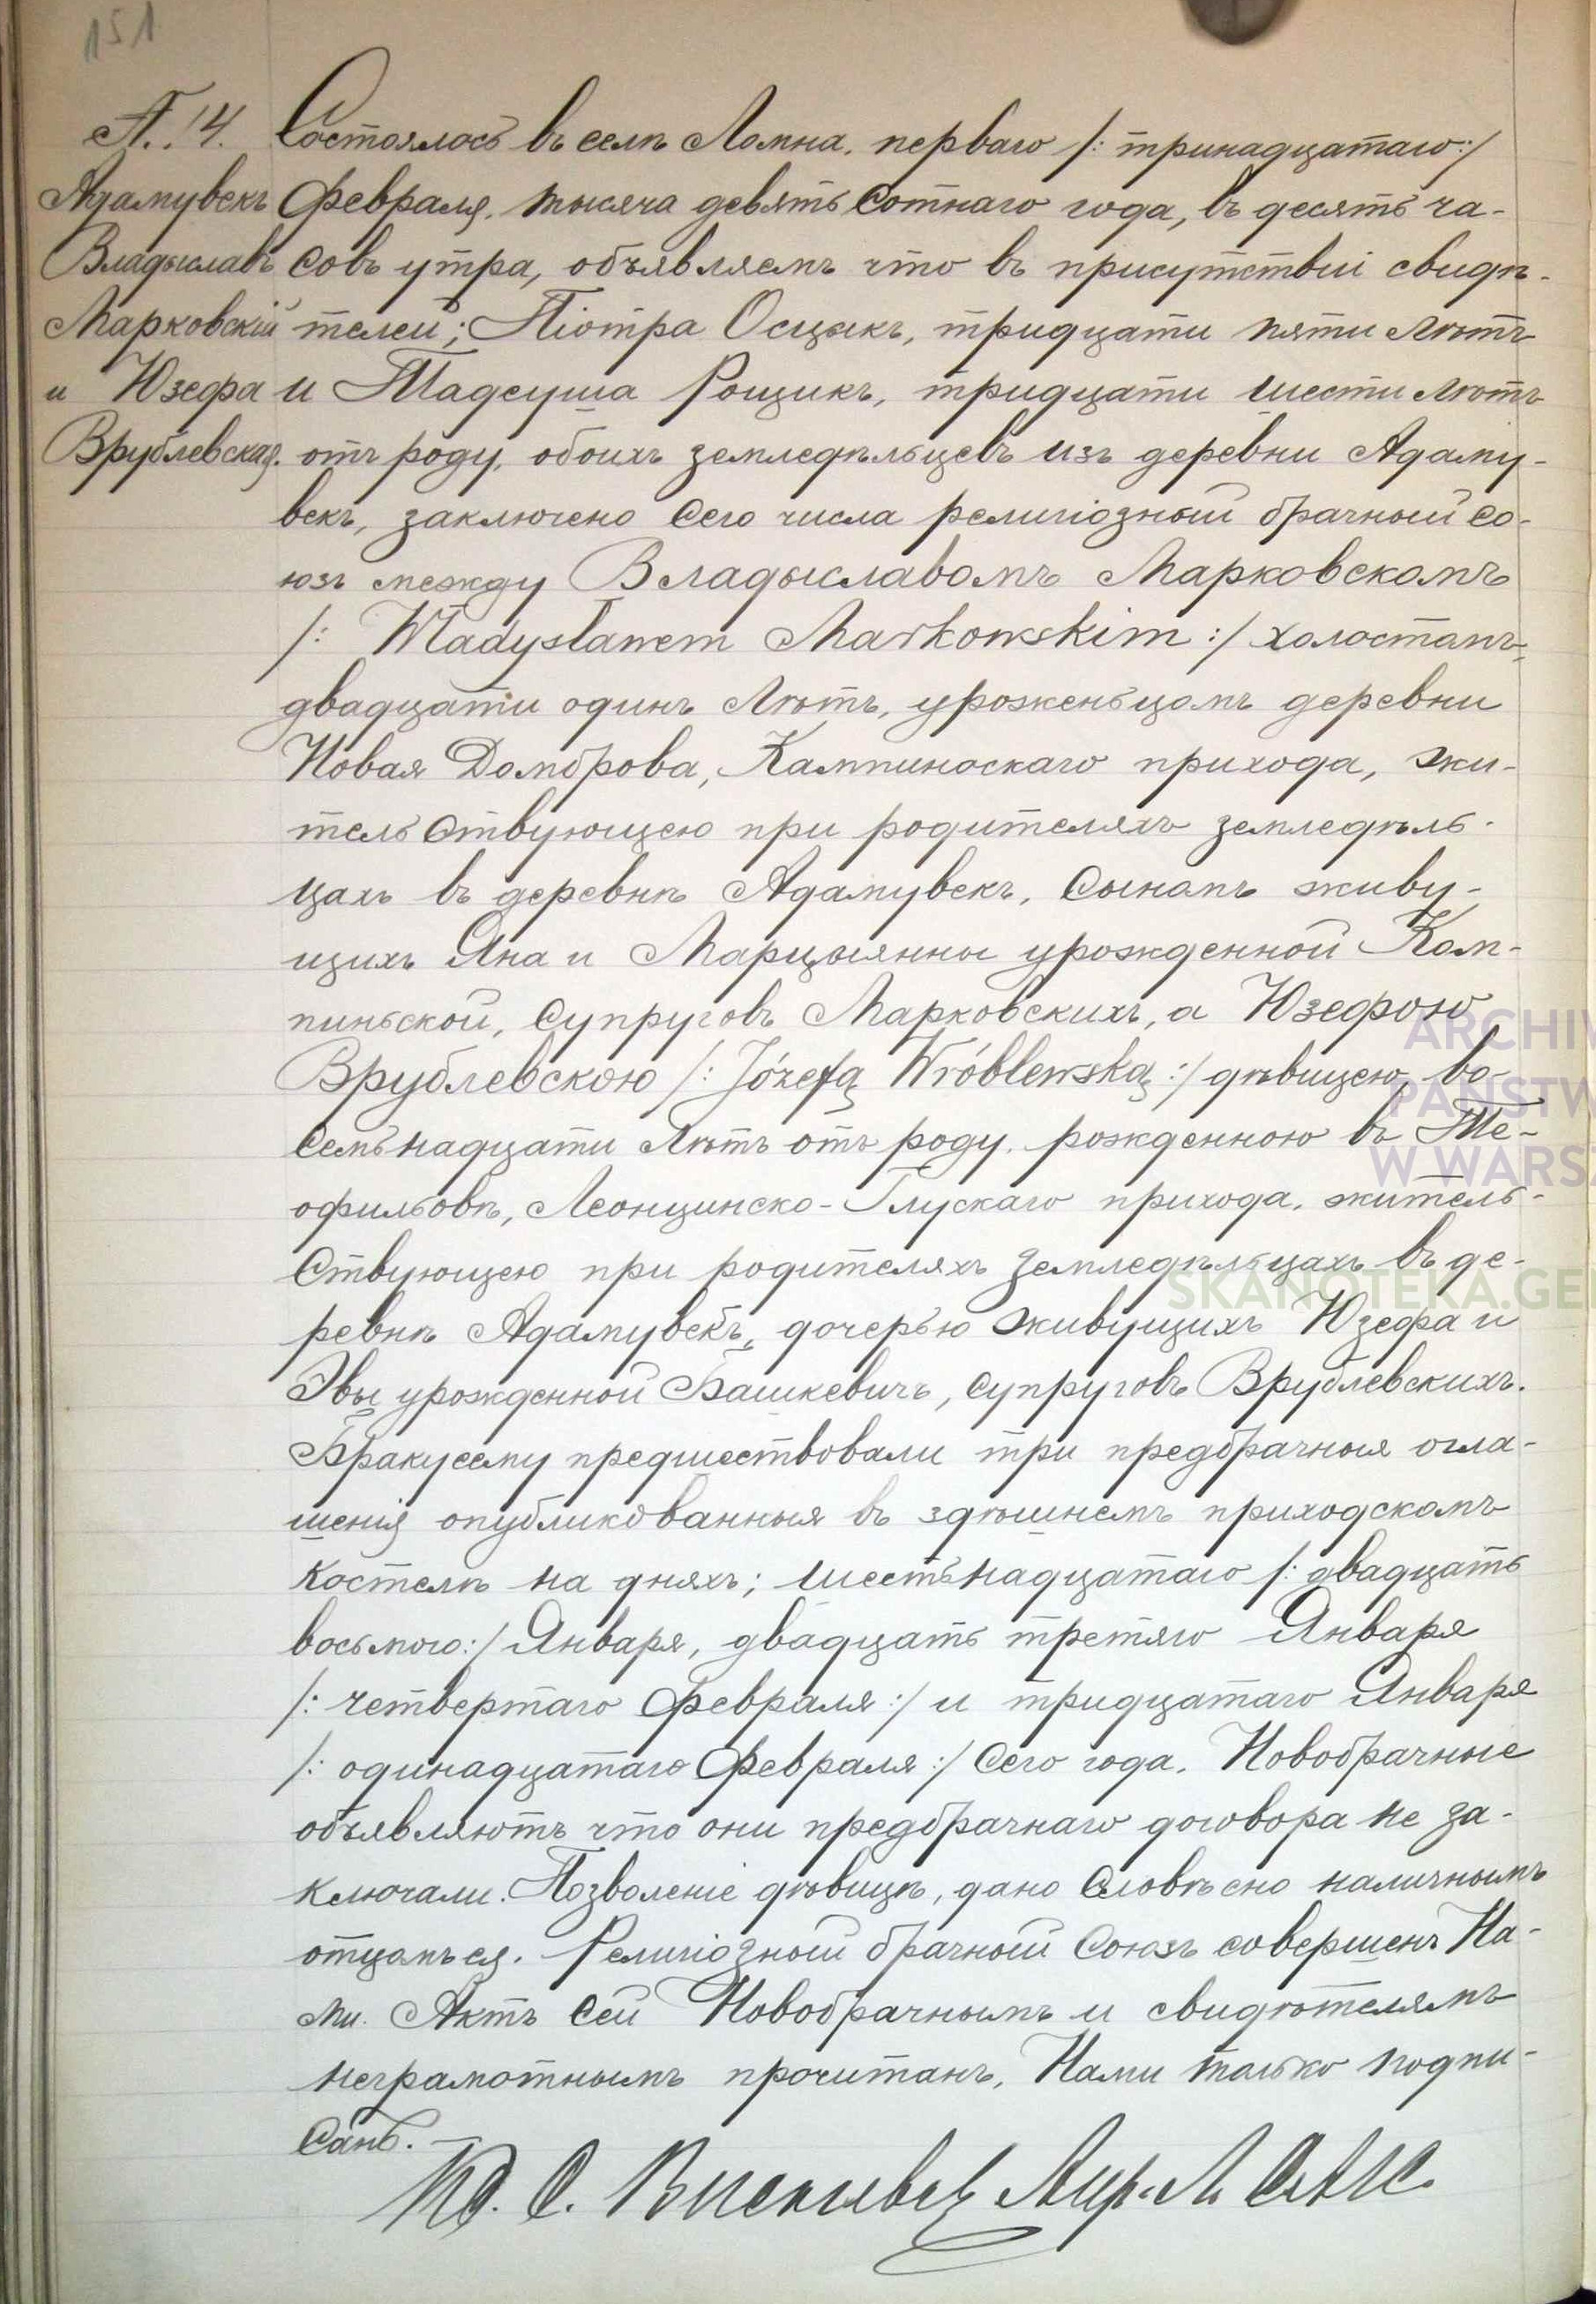 151
А. 14.
Адамувекъ
Владыславъ
Марковскій
и Юзефа
Врублевская.
Состоялось въ селѣ Ломна, перваго /: тринадцатаго :/
Февраля, тысяча девять сотнаго года, въ десять ча-
совъ утра, объявляемъ что въ присутствіи свидѣ-
телей; Піотра Осцакъ, тридцати пяти лѣтъ
и Тадеуша Рощикъ, тридцати шести лѣтъ
отъ роду, обоихъ земледѣльцевъ изъ деревни Адаму-
векъ, заключено сего числа религіозный брачный со-
юзъ между Владыславомъ Марковскомъ
/: Władysławem Markowskim :/ холостамъ,
двадцати одинъ лѣтъ, уроженьцомъ деревни
Новая Домброва, Кампиноскаго прихода, жи-
тельствующею при родителяхъ земледѣль-
цахъ въ деревнѣ Адамувекъ, сынамъ живу-
щихъ Яна и Марцыянны урожденной Кам-
пиньской, супруговъ Марковскихъ, а Юзефою
Врублевскою /: Józefą Wróblewską :/ дѣвицею, во-
семьнадцати лѣтъ отъ роду, рожденною въ Те-
офильовѣ, Леонцинско-Глускаго прихода, житель-
ствующею при родителяхъ земледѣльцахъ въ де-
ревнѣ Адамувекъ, дочерью живущихъ Юзефа и
Эвы урожденной Башкевичъ, супруговъ Врублевскихъ.
Бракусему предшествовали три предбрачныя огла-
шенія опубликованныя въ здѣшнемъ приходскомъ
костелѣ на дняхъ; шестьнадцатаго /: двадцать
восьмого :/ Января, двадцать третяго Января
/: четвертаго Февраля :/ и тридцатаго Января
/: одинадцатаго Февраля :/ сего года. Новобрачные
объявляютъ что они предбрачнаго договора не за-
ключали. Позволеніе дѣвицѣ, дано словѣсно наличнымъ
отцамъ ея. Религіозный брачный союзъ совершенъ На-
ми. Актъ сей Новобрачнымъ и свидѣтелямъ
неграмотнымъ прочитанъ, Нами только подпи-
санъ.
ARCHIW
PAŃSTW
W WARSZ
SKANOTEKA.GE